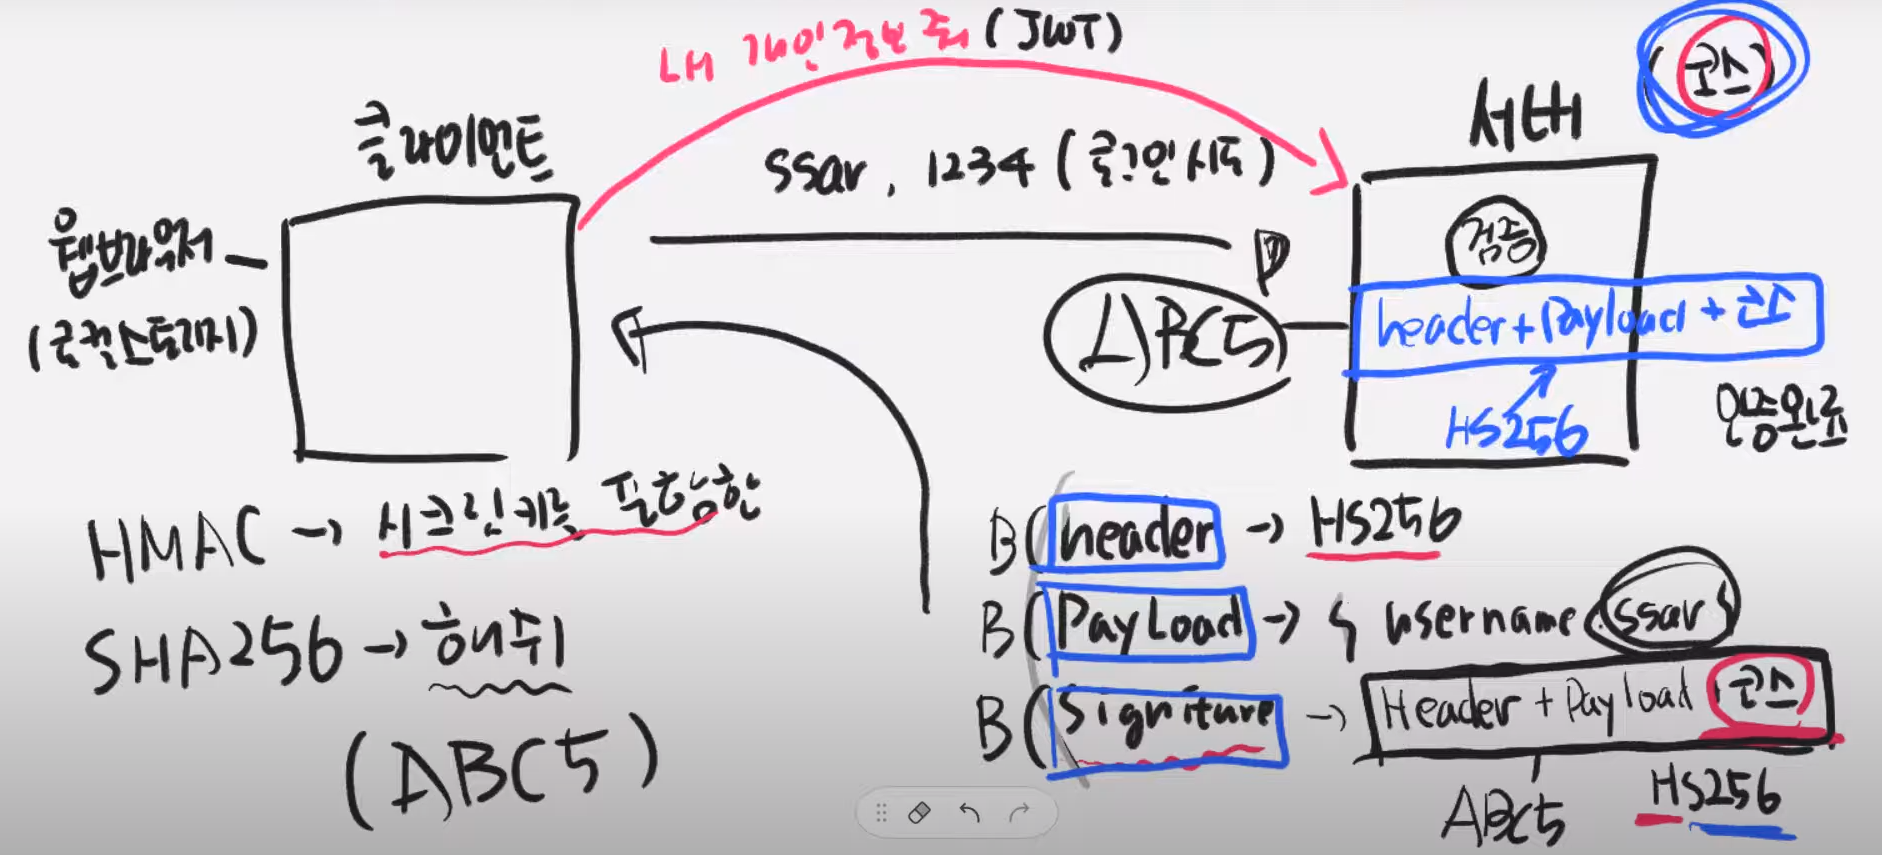 내 개인정보 줘 (JWT)
(코스)
서버
클라이언트
ssar, 1234 (로그인시도)
웹브라우저
(로컬스토리지)
검증
header+Payload+코스
ABC5
HS256
인증완료
HMAC → 시크릿키를 포함한
SHA256 → 해쉬
(ABC5)
B(header → HS256
B(PayLoad → { username : ssar }
B(Signiture → Header + Payload 코스
ABC5
HS256